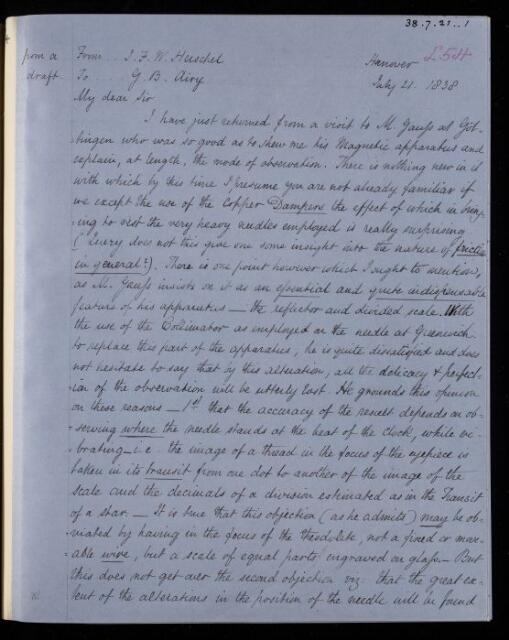 38.7.21..1
L.54
from a draft
From .. J. F. W. Herschel
Hanover
To .... G. B. Airy
July 21. 1838
My dear Sir
I have just returned from a visit to M. Gauss at Göt-
-tingen who was so good as to shew me his Magnetic apparatus and
explain, at length, the mode of observation. There is nothing new in it
with which by this time I presume you are not already familiar if
we except the use of the Copper Dampers the effect of which in bring-
-ing to rest the very heavy needles employed is really surprising
(Query does not this give one some insight into the nature of friction
in general?). There is one point however which I ought to mention,
as M. Gauss insists on it as an essential and quite indispensable
feature of his apparatus — the reflector and divided scale. With
the use of the Collimator as employed on the needle at Greenwich
to replace this part of the apparatus, he is quite dissatisfied and does
not hesitate to say that by this alteration, all the delicacy & perfect-
-ion of the observation will be utterly lost. He grounds this opinion
on these reasons — 1st that the accuracy of the result depends on ob-
-serving where the needle stands at the beat of the Clock, while vi-
-brating — i.e. the image of a thread in the focus of the eyepiece is
taken in its transit from one dot to another of the image of the
scale and the decimals of a division estimated as in the Transit
of a star. — It is true that this objection (as he admits) may be ob-
-viated by having in the focus of the theodolite, not a fixed or move-
-able wire, but a scale of equal parts engraved on glass. — But
this does not get over the second objection viz: that the great ex-
-tent of the alterations in the position of the needle will be found